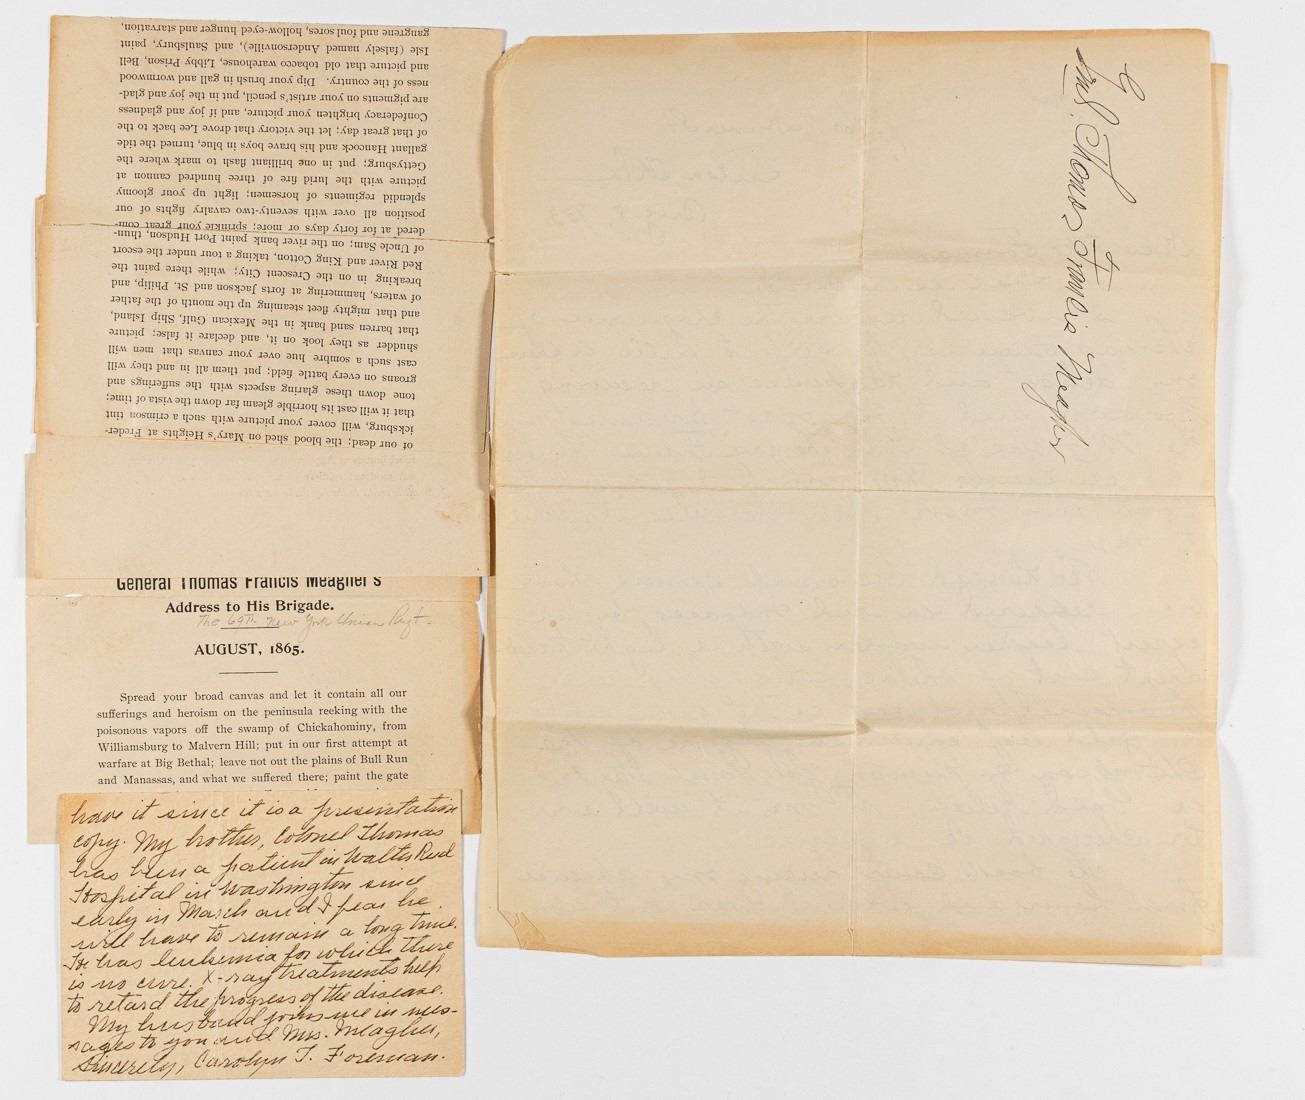 of our dead; the blood shed on Mary's Heights at Freder-
icksburg, will cover your picture with such a crimson tint
that it will cast its horrible gleam far down the vista of time;
tone down these glaring aspects with the sufferings and
groans on every battle field; put them all in and they will
cast such a sombre hue over your canvas that men will
shudder as they look on it, and declare it false; picture
that barren sand bank in the Mexican Gulf, Ship Island,
and that mighty fleet steaming up the mouth of the father
of waters, hammering at forts Jackson and St. Philip, and
breaking in on the Crescent City; while there paint the
Red River and King Cotton, taking a tour under the escort
of Uncle Sam; on the river bank paint Port Hudson, thun-
dered at for forty days or more; sprinkle your great com-
position all over with seventy-two cavalry fights of our
splendid regiments of horsemen; light up your gloomy
picture with the lurid fire of three hundred cannon at
Gettysburg; put in one brilliant flash to mark where the
gallant Hancock and his brave boys in blue, turned the tide
of that great day; let the victory that drove Lee back to the
Confederacy brighten your picture, and if joy and gladness
are pigments on your artist's pencil, put in the joy and glad-
ness of the country. Dip your brush in gall and wormwood
and picture that old tobacco warehouse, Libby Prison, Bell
Isle (falsely named Andersonville), and Saulsbury, paint
gangrene and foul sores, hollow-eyed hunger and starvation,
General Thomas Francis Meagher's
Address to His Brigade.
The 69th New York Union Regt.
AUGUST, 1865.
Spread your broad canvas and let it contain all our
sufferings and heroism on the peninsula reeking with the
poisonous vapors off the swamp of Chickahominy, from
Williamsburg to Malvern Hill; put in our first attempt at
warfare at Big Bethal; leave not out the plains of Bull Run
and Manassas, and what we suffered there; paint the gate
have it since it is a presentation
copy. My brother, Colonel Thomas
has been a patient in Walter Reed
Hospital in Washington since
early in March and I fear he
will have to remain a long time.
He has leukemia for which there
is no cure. X-ray treatments help
to retard the progress of the disease.
My husband joins me in mes-
sages to you and Mrs. Meagher,
Sincerely, Carolyn T. Foreman.
Thomas Francis Meagher